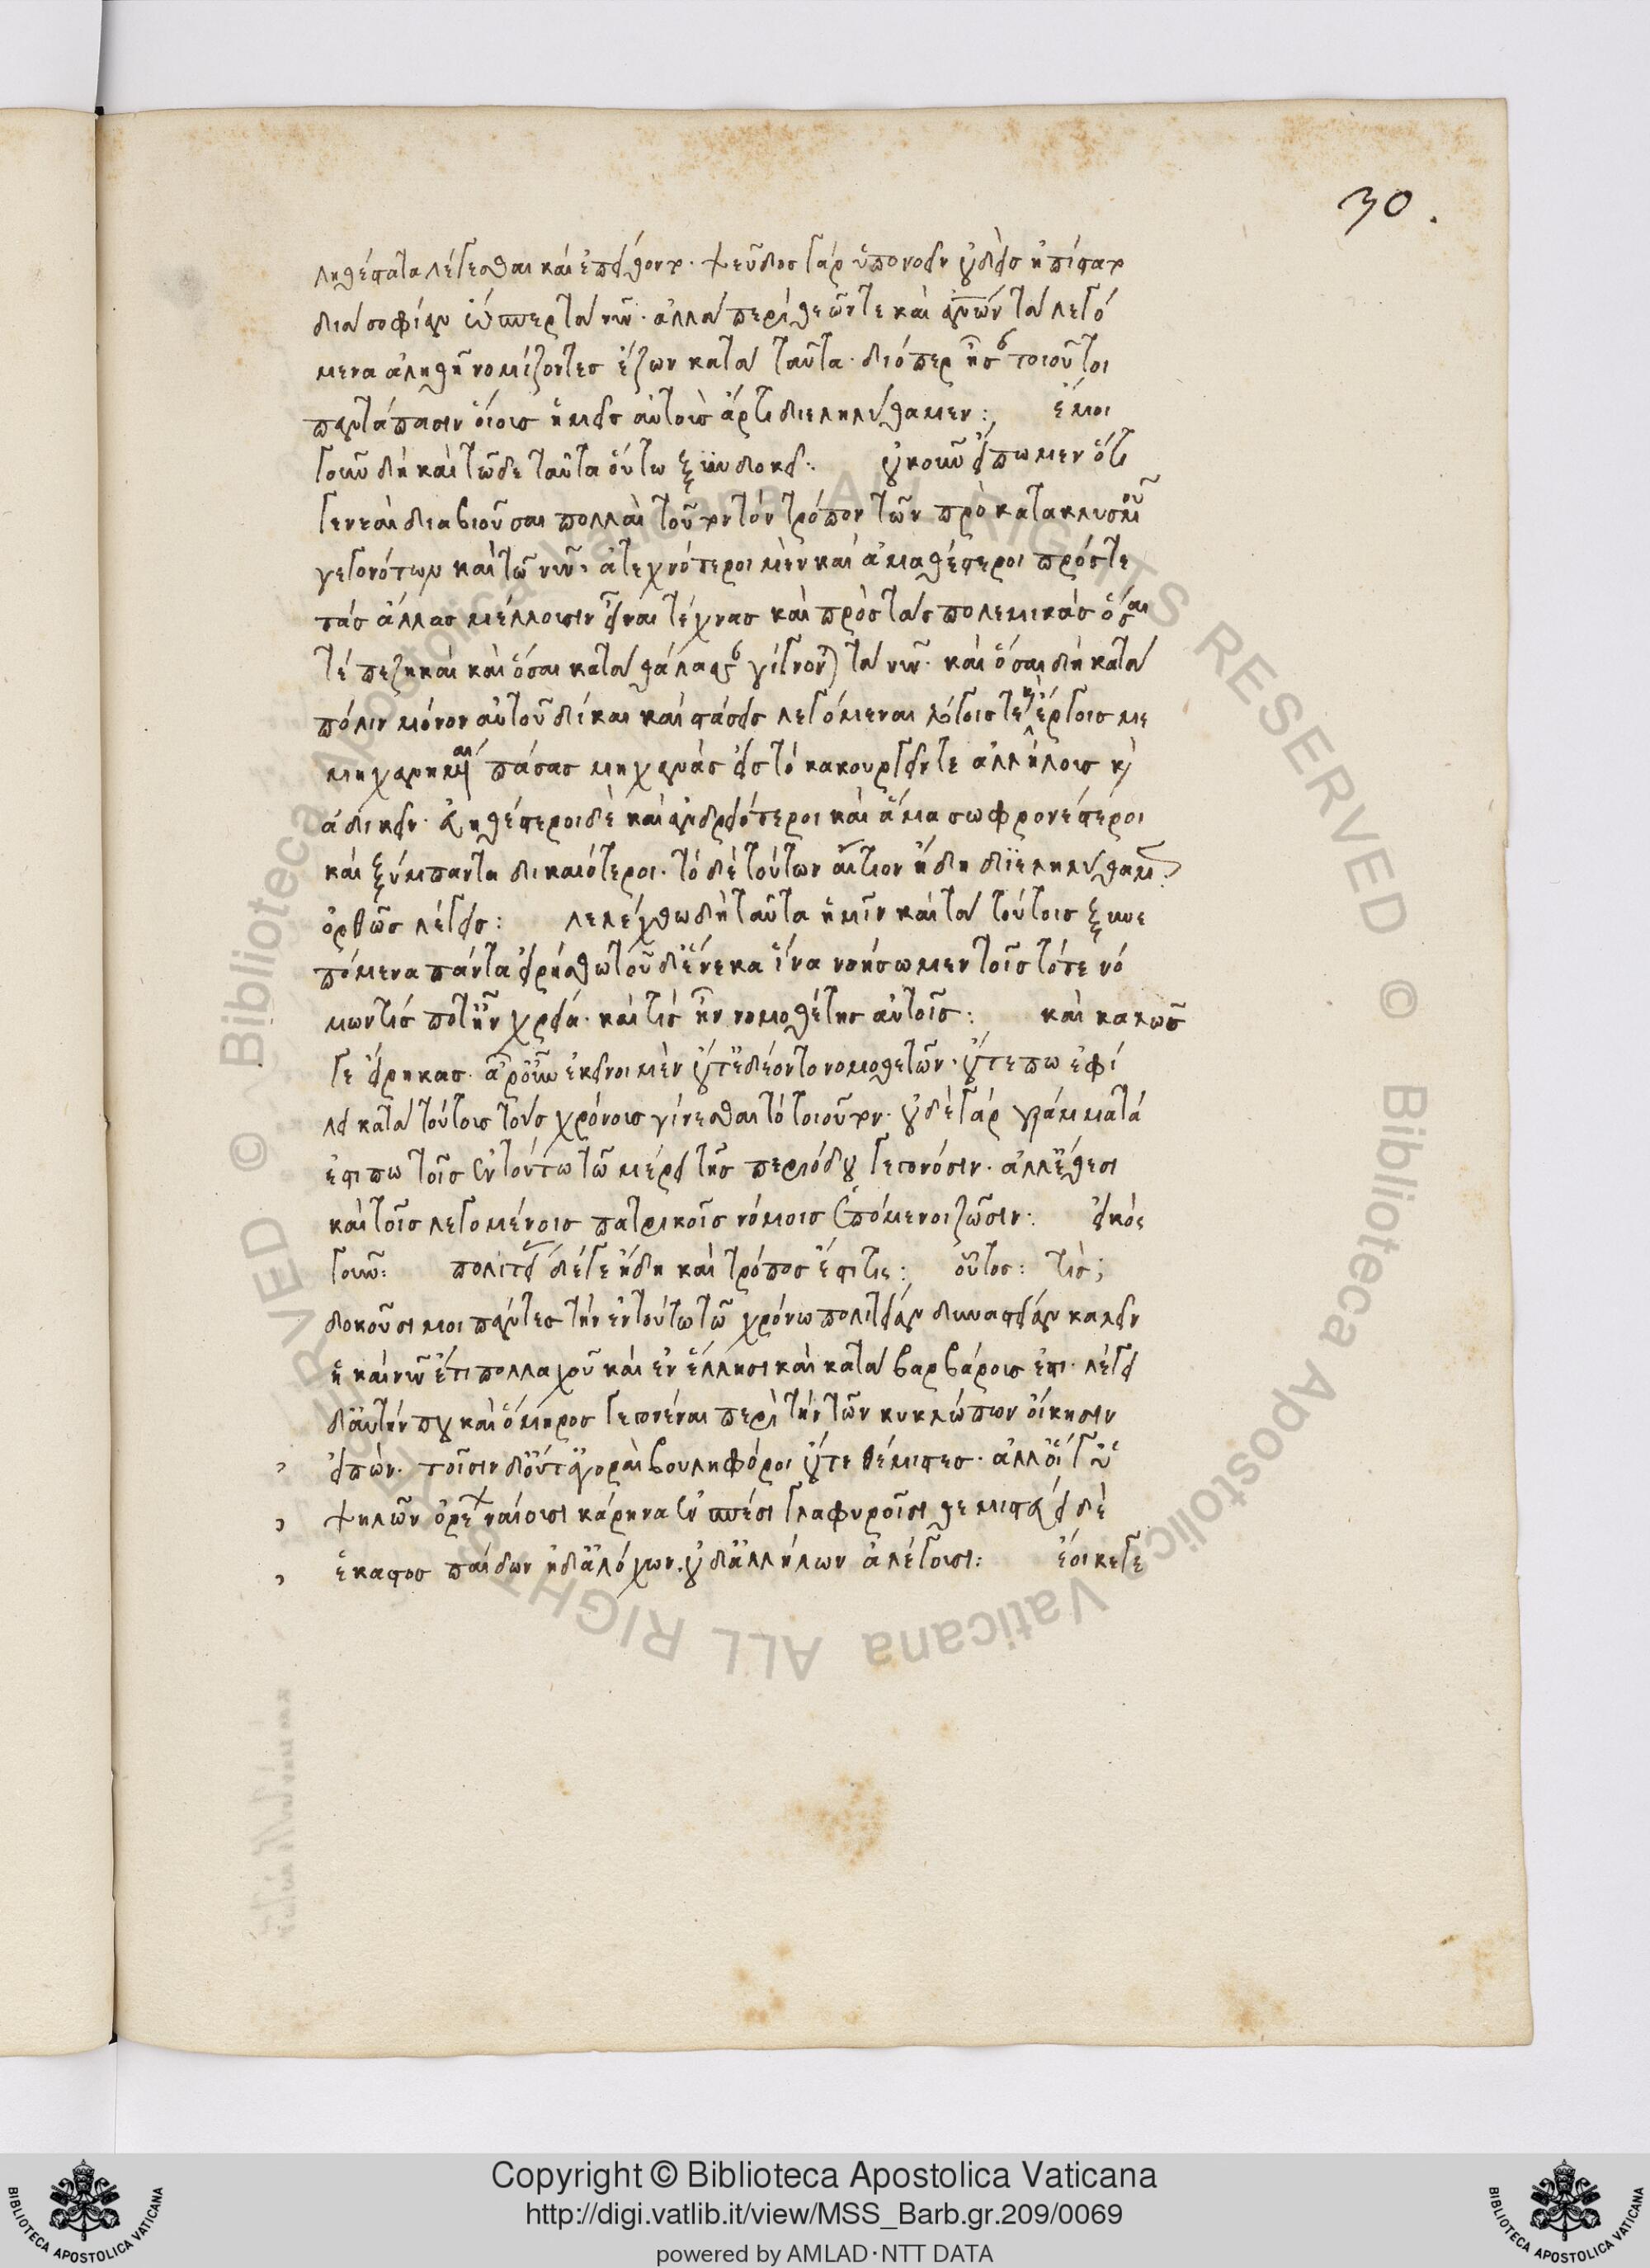 30.
ληθέστατα λέγεσθαι καὶ ἐπείθοντο. ψεῦδος γὰρ ὑπονοεῖν οὐδεὶς ἠπίστατο
διὰ σοφίαν ὥσπερ τὰ νῦν. ἀλλὰ περὶ θεῶν τε καὶ ἀνθρώπων τὰ λεγό
μενα ἀληθῆ νομίζοντες ἔζων κατὰ ταῦτα. διόπερ ἦσαν τοιοῦτοι
παντάπασιν οἵους ἡμεῖς αὐτοὺς ἄρτι διεληλύθαμεν: ἐμοὶ
γοῦν δὴ καὶ τῷδε ταῦτα οὕτω ξυνδοκεῖ: οὐκοῦν εἴπωμεν ὅτι
γενεαὶ διαβιοῦσαι πολλαὶ τοῦτον τὸν τρόπον τῶν πρὸ κατακλυσμοῦ
γεγονότων καὶ τῶν νῦν. ἀτεχνότεροι μὲν καὶ ἀμαθέστεροι πρός τε
τὰς ἄλλας μέλλουσιν εἶναι τέχνας καὶ πρὸς τὰς πολεμικάς ὅσαι
τέ πεζικαὶ καὶ ὅσαι κατὰ θάλατταν γίγνονται τὰ νῦν. καὶ ὅσαι δὴ κατὰ
πόλιν μόνον αὐτοῦ δίκαι καὶ στάσεις λεγόμεναι λόγοις τε καὶ ἔργοις με
μηχανημέναι πάσας μηχανὰς εἰς τὸ κακουργεῖν τε ἀλλήλους καὶ
ἀδικεῖν. εὐηθέστεροι δὲ καὶ ἀνδρειότεροι καὶ ἅμα σωφρονέστεροι
καὶ ξύμπαντα δικαιότεροι. τὸ δὲ τούτων αἴτιον ἤδη διεληλύθαμεν:
ὀρθῶς λέγεις: λελέχθω δὴ ταῦτα ἡμῖν καὶ τὰ τούτοις ξυνε
πόμενα πάντα εἰρήσθω τοῦδ' ἕνεκα ἵνα νοήσωμεν τοῖς τότε νό
μων τίς ποτ' ἦν χρεία. καὶ τίς ἦν νομοθέτης αὐτοῖς: καὶ καλῶς
γε εἴρηκας. ἆρ' οὖν ἐκεῖνοι μὲν οὔτ' ἐδέοντο νομοθετῶν. οὔτε πω ἐφί
λει κατὰ τούτους τοὺς χρόνους γίνεσθαι τὸ τοιοῦτον. οὐδὲ γὰρ γράμματά
ἐστι πω τοῖς ἐν τούτω τῶ μέρει τῆς περιόδου γεγονόσιν. ἀλλ' ἔθεσι
καὶ τοῖς λεγομένοις πατρικοῖς νόμοις ἑπόμενοι ζῶσιν: εἰκός
γοῦν: πολιτεία δέ γε ἤδη καὶ τρόπος ἐστί τις: οὗτος: τίς;
δοκοῦσι μοι πάντες τὴν ἐν τούτω τῶ χρόνω πολιτείαν δυναστείαν καλεῖν
ἣ καὶ νῦν ἔτι πολλαχοῦ καὶ ἐν ἕλλησι καὶ κατὰ βαρβάρους ἐστί. λέγει
δ' αὐτήν που καὶ ὅμηρος γεγονέναι περὶ τὴν τῶν κυκλώπων οἴκησιν
εἰπών. τοῖσιν δ' οὔτ' ἀγοραὶ βουληφόροι οὔτε θέμιστες. ἀλλ' οἵ γ' ὑ
ψηλῶν ὀρέων ναίουσι κάρηνα ἐν σπέσι γλαφυροῖσι θεμιστεύει δὲ
ἕκαστος παίδων ἠδ' ἀλόχων. οὐδ' ἀλλήλων ἀλέγουσι: ἔοικέ γε
Copyright © Biblioteca Apostolica Vaticana
http://digi.vatlib.it/view/MSS_Barb.gr.209/0069
powered by AMLAD·NTT DATA